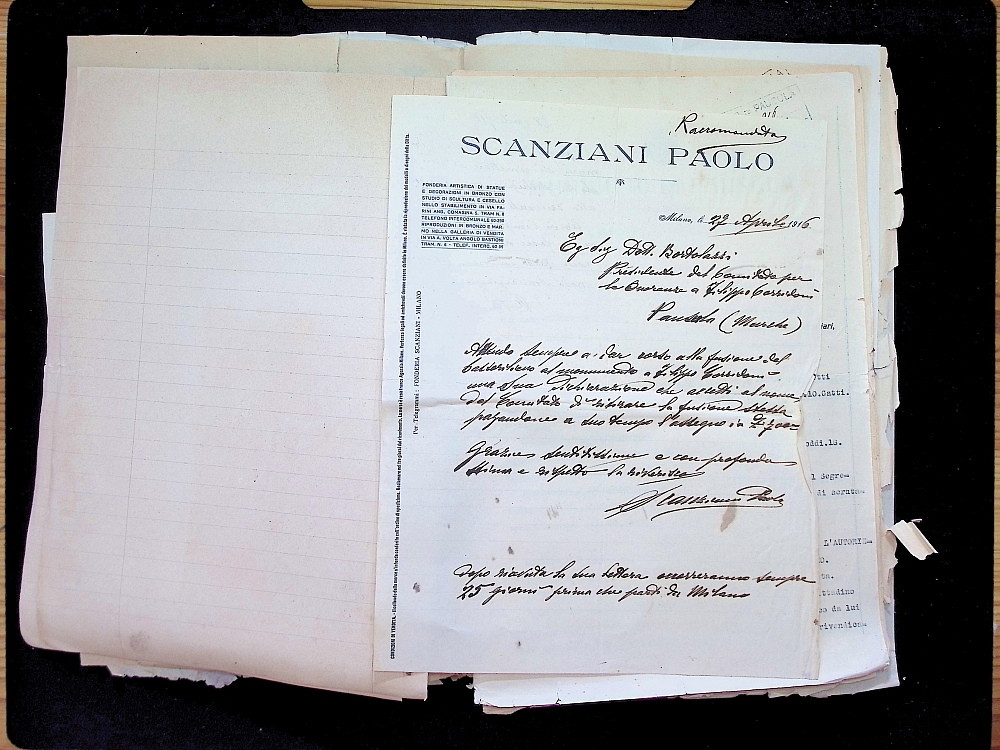 PAUSULA
Raccomandata
SCANZIANI PAOLO
FONDERIA ARTISTICA DI STATUE
E DECORAZIONI IN BRONZO CON
STUDIO DI SCULTURA E CESELLO
NELLO STABILIMENTO IN VIA FA-
RINI ANG. COMASINA 5. TRAM N. 8
TELEFONO INTERCOMUNALE
RIPRODUZIONI IN BRONZO E MAR-
MO NELLA GALLERIA DI VENDITA
IN VIA A. VOLTA ANGOLO BASTIONI
TRAM. N. 8 - TELEF. INTERC.
Per Telegrammi: FONDERIA SCANZIANI - MILANO
CONDIZIONI DI VENDITA.
Milano, li 22 Aprile 1916
Eg Sig Dott. Bortolazzi
Presidente del Comitato per
le Onoranze a Filippo Corridoni
Pausola (Marche)
Attendo sempre a dar corso alla fusione del
al monumento a Filippo Corridoni
una sua dichiarazione che accetti al nome
del Comitato di ritirare la fusione stessa
pagandone a suo tempo l'assegno in
Grazie sentitissime e con profonda
stima e rispetto la riverisco
Scanziani Paolo
dopo ricevuta la sua lettera occorreranno sempre
25 giorni prima che parti da Milano
iari,
otti
io.Gatti.
oddi.19.
l Segre=
di scruta=
L'AUTORIE=
O.
ta.
ttadino
co da lui
rivendica=